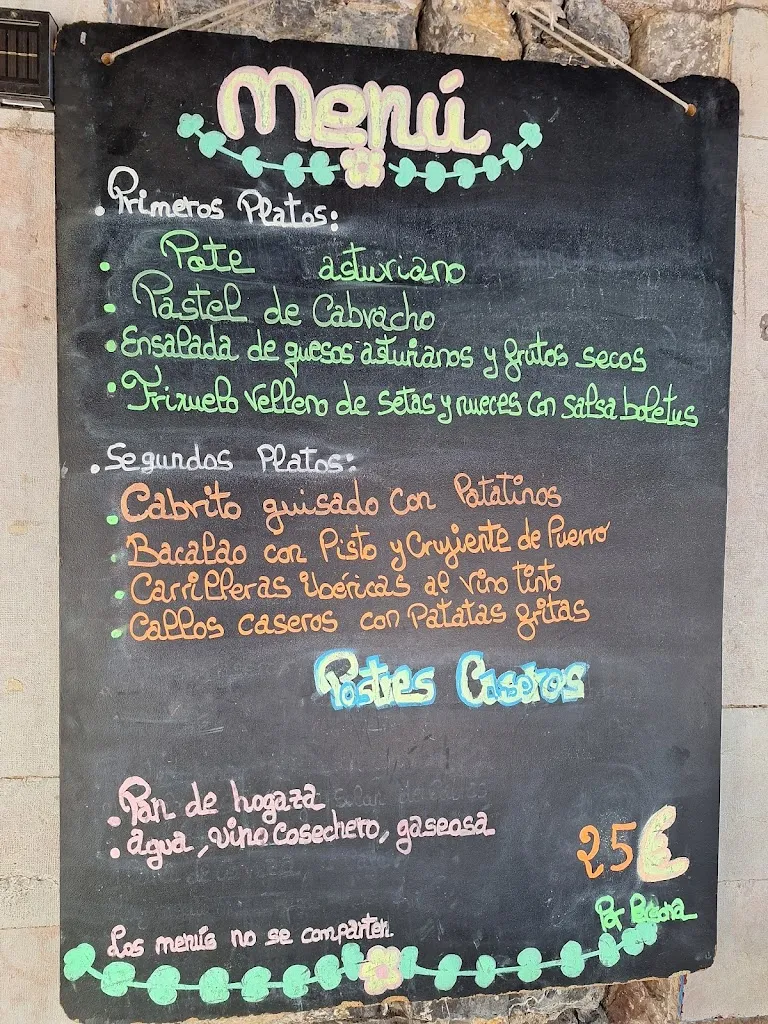 Menú
. Primeros Platos:
• Pote asturiano
• Pastel de Cabracho
• Ensalada de quesos asturianos y frutos secos
• Frixuelo relleno de setas y nueces con salsa boletus
. Segundos Platos:
• Cabrito guisado con Patatinos
• Bacalao con Pisto y Crujiente de Puerro
• Carrilleras ibéricas al vino tinto
• Callos caseros con Patatas fritas
Postres Caseros
. Pan de hogaza
. agua, vino Cosechero, gaseosa
25€
Por Persona
Los menús no se comparten